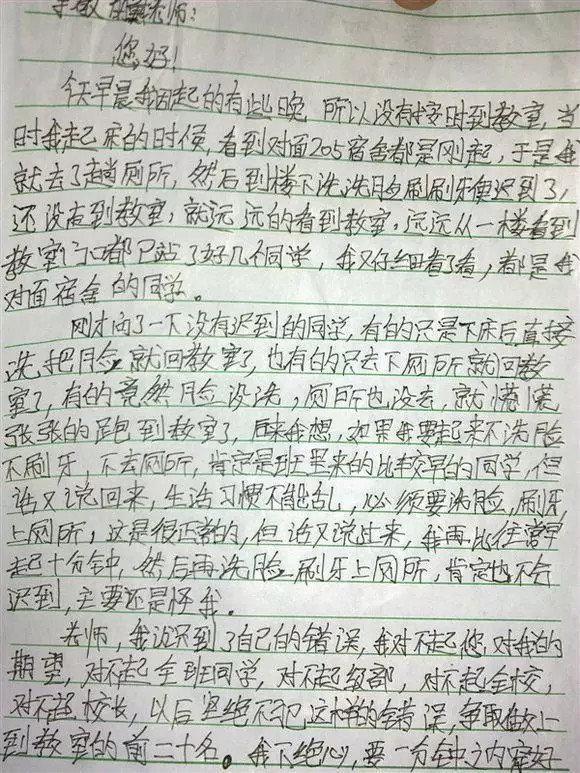 老师:
您好!
今天早晨我因起的有些晚,所以没有按时到教室,当
时我起床的时候,看到对面205宿舍都是刚起,于是我
就去了趟厕所,然后到楼下洗洗脸刷刷牙便迟到了,
还没走到教室,就远远的看到教室,远远从一楼看到
教室门口都已站了好几个同学,我又仔细看了看,都是我
对面宿舍的同学。
刚才问了一下没有迟到的同学,有的只是下床后直接
洗把脸就回教室了,也有的只去下厕所就回教
室了,有的竟然脸没洗,厕所也没去,就慌慌
张张的跑到教室了,后来我想,如果我要起来不洗脸
不刷牙,不去厕所,肯定是班里来的比较早的同学,但
话又说回来,生活习惯不能乱,必须要洗脸,刷牙,
上厕所,这是很正常的,但话又说过来,我再比往常早
起十分钟,然后再洗脸刷牙上厕所,肯定也不会
迟到,主要还是怪我。
老师,我认识到了自己的错误,我对不起您对我的
期望,对不起全班同学,对不起级部,对不起全校,
对不起校长,以后坚绝不犯这样的错误,争取做上
到教室的前二十名。我下绝心,要一分钟之内穿好